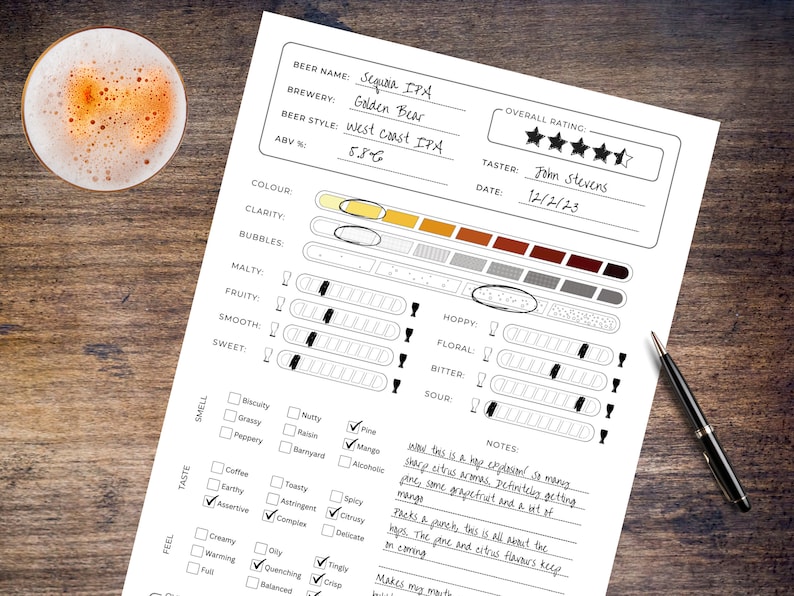 BEER NAME: Sequoia IPA
BREWERY: Golden Bear
BEER STYLE: West Coast IPA
ABV %: 5.8%
OVERALL RATING:
TASTER: John Stevens
DATE: 12/2/23
COLOUR:
CLARITY:
BUBBLES:
MALTY:
FRUITY:
SMOOTH:
SWEET:
HOPPY:
FLORAL:
BITTER:
SOUR:
SMELL
Biscuity
Grassy
Peppery
Nutty
Raisin
Barnyard
Pine
Mango
Alcoholic
TASTE
Coffee
Earthy
Assertive
Toasty
Astringent
Complex
Spicy
Citrusy
Delicate
FEEL
Creamy
Warming
Full
Oily
Quenching
Balanced
Tingly
Crisp
NOTES:
Wow this is a hop explosion! So many
sharp citrus aromas. Definitely getting
pine, some grapefruit and a bit of
mango
Packs a punch, this is all about the
hops. The pine and citrus flavours keep
on coming
Makes my mouth